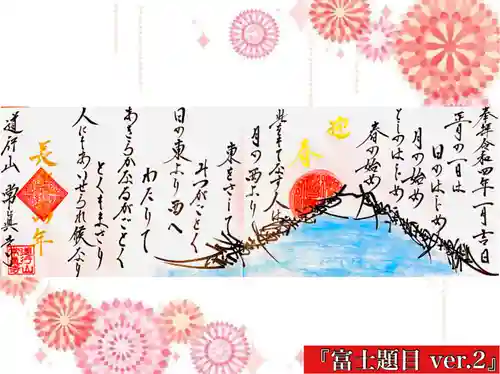 奉拝 令和四年一月吉日
正月の一日は
日のはじめ
月の始め
としのはじめ
春の始め
迎春
此をもてなす人は
月の西より
東をさして
みつがごとく
日の東より西へ
わたりて
あきらかなるがごとく
とくもまさり
人にもあいせられ候なり
年
『富士題目 ver.2』